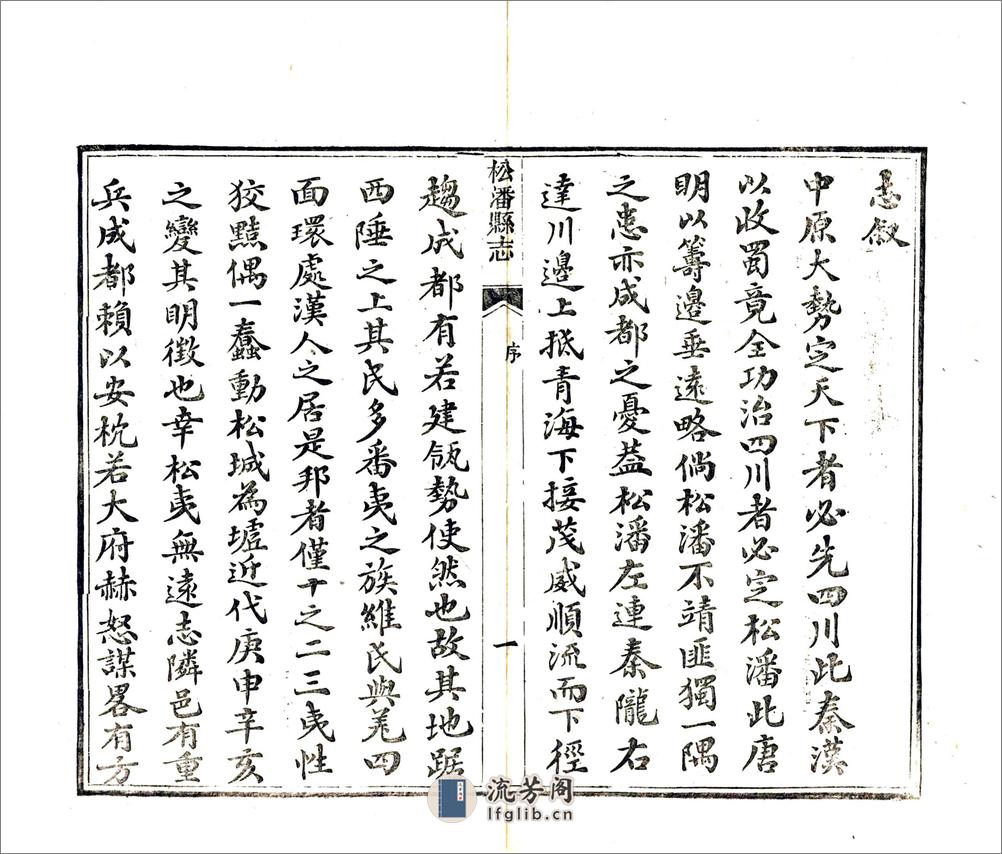 志敘
中原大勢定天下者必先四川此秦漢
以收蜀竟全功治四川者必定松潘此唐
明以籌邊垂遠略倘松潘不靖匪獨一隅
之患亦成都之憂葢松潘左連秦隴右
達川邊上抵青海下接茂威順流而下徑
松潘縣志
序
一
趨成都有若建瓴勢使然也故其地踞
西陲之上其民多番夷之族維氐與羌四
面環處漢人之居是邦者僅十之二三夷性
狡黠偶一蠢動松城為墟近代庚申辛亥
之變其明徵也幸松夷無遠志隣邑有重
兵成都賴以安枕若大府赫怒謀畧有方
流芳阁
lfglib.cn